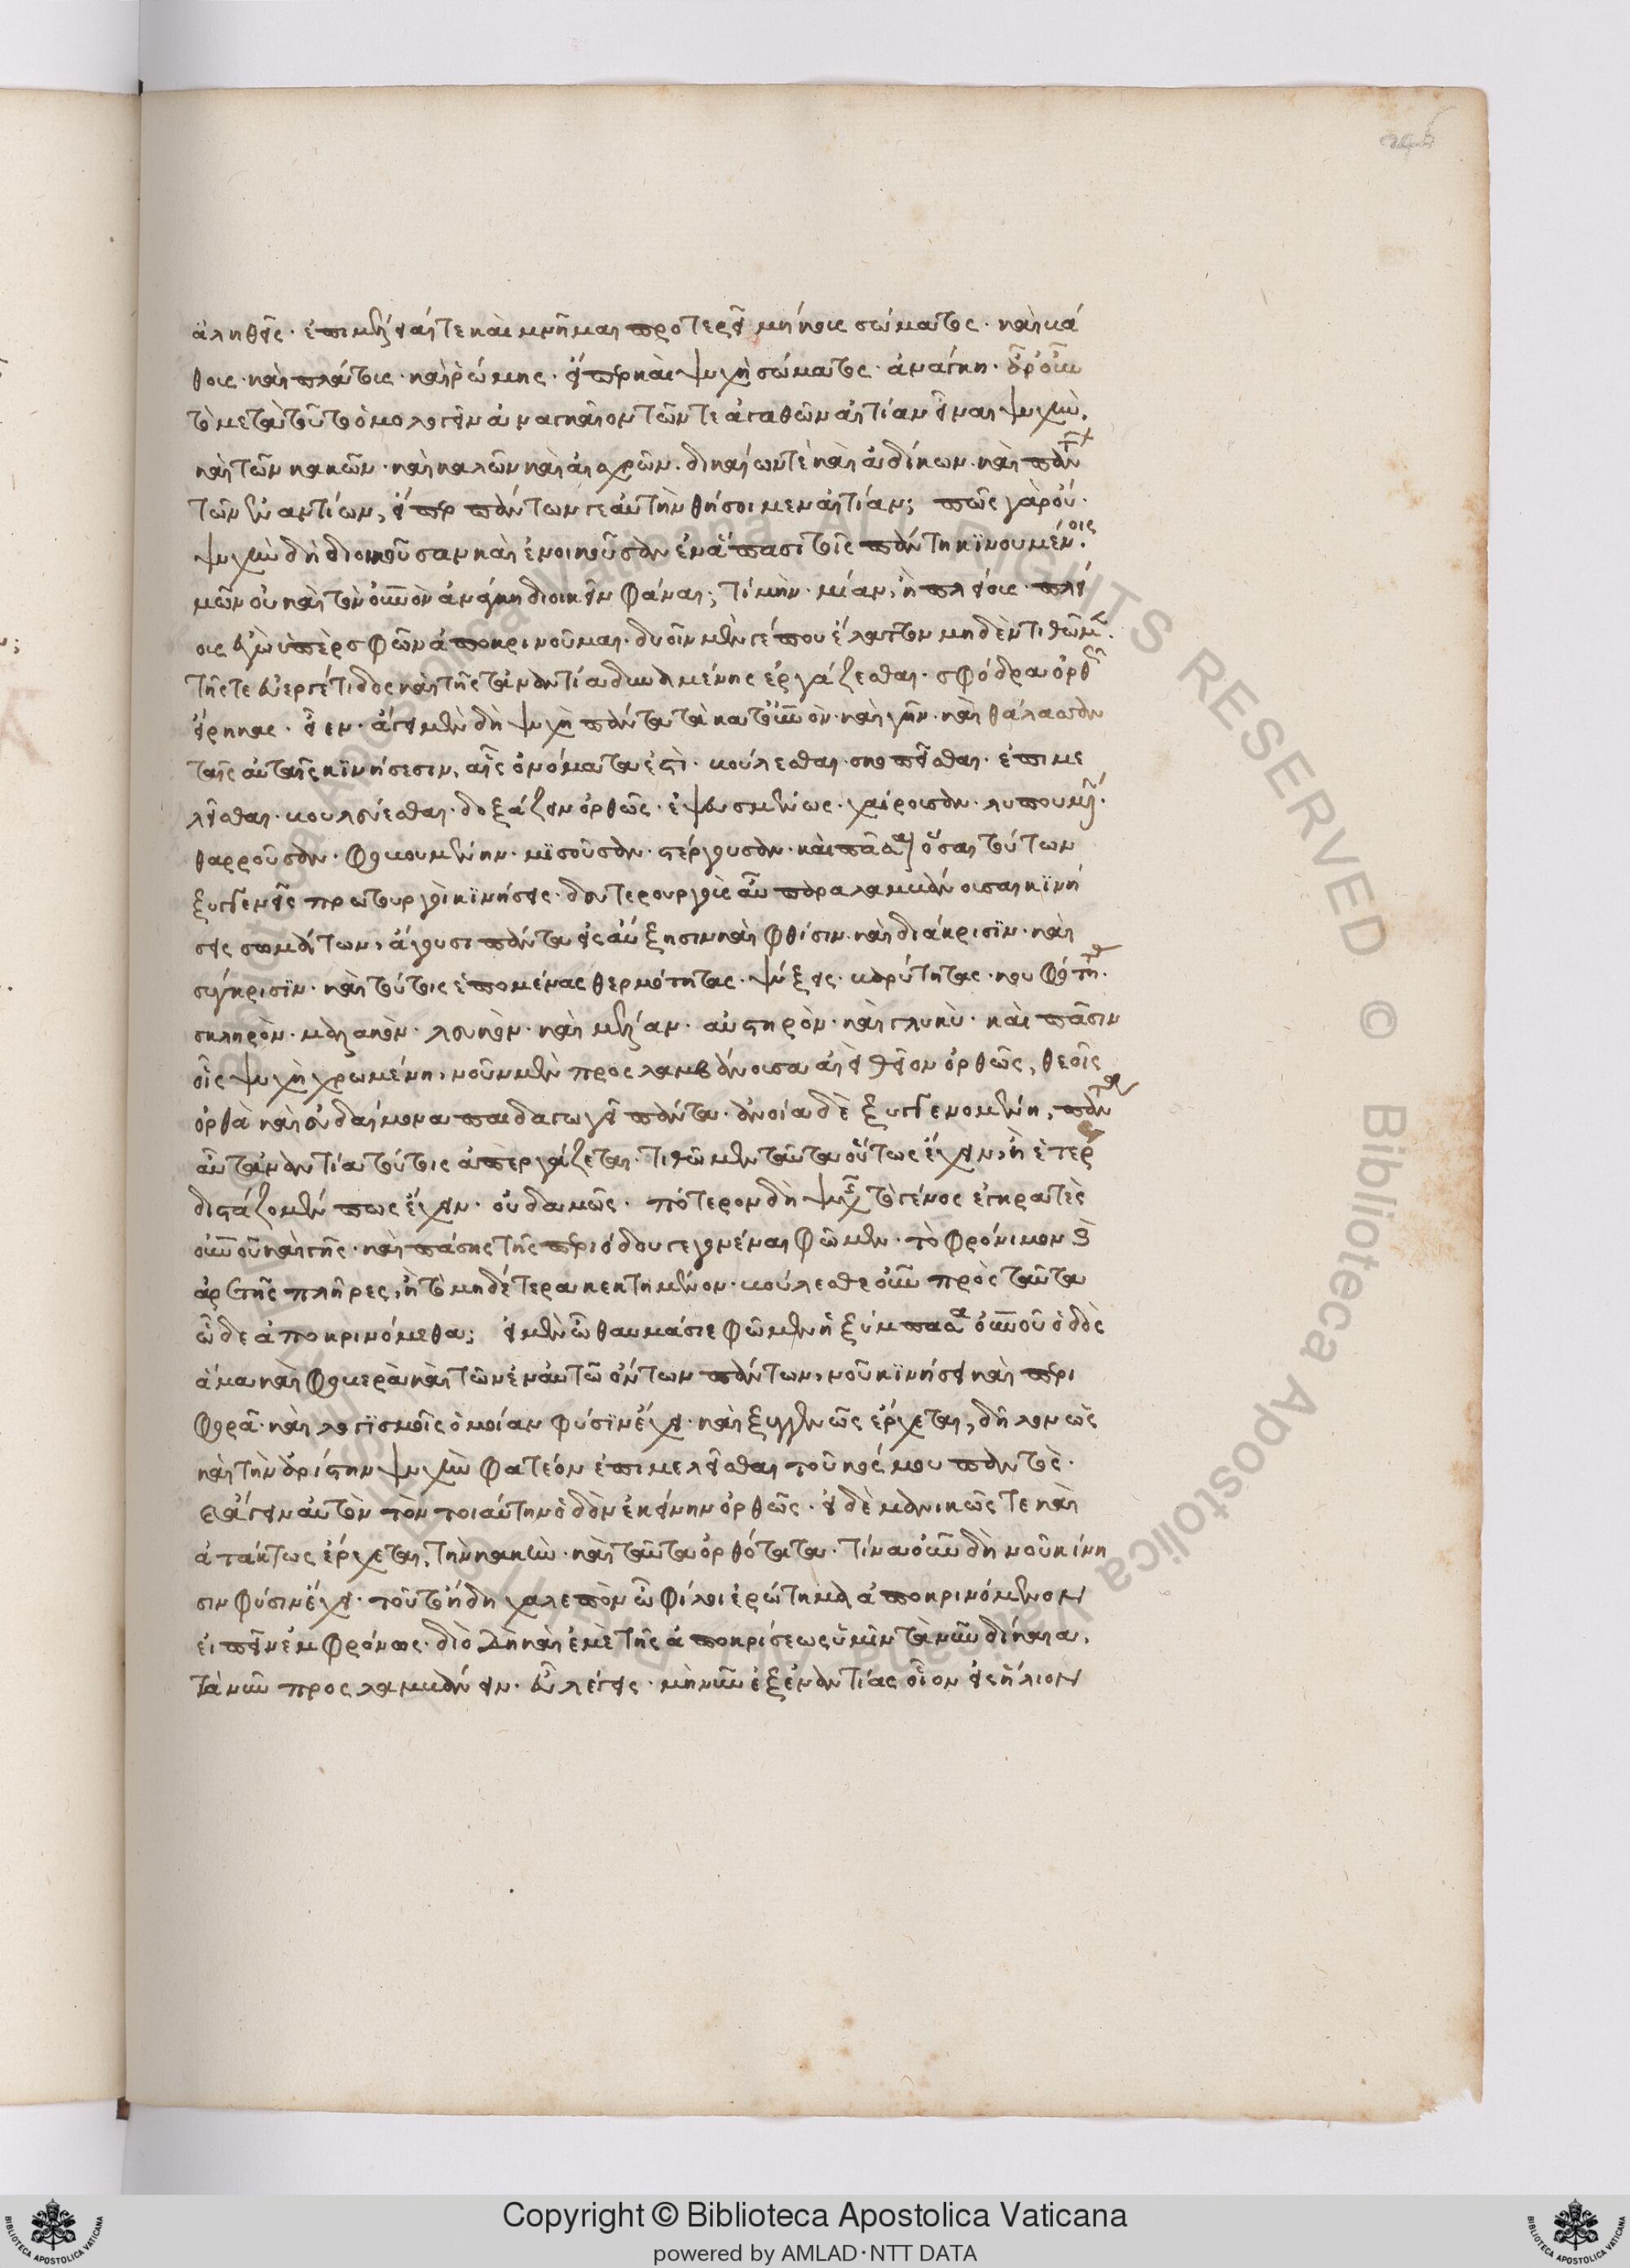 ἀληθεῖς· ἐπιμέλειαί τε καὶ μνῆμαι πρότεραι μήκους σώματος· καὶ βά
θους· καὶ πλάτους· καὶ ῥώμης· εἴπερ καὶ ψυχὴ σώματος· ἀνάγκη· ἆρ' οὖν
τὸ μετὰ τοῦτο ὁμολογεῖν ἀναγκαῖον τῶν τε ἀγαθῶν αἰτίαν εἶναι ψυχὴν,
καὶ τῶν κακῶν· καὶ καλῶν καὶ αἰσχρῶν· δικαίων τὲ καὶ ἀδίκων· καὶ πάντων
τῶν ἐναντίων, εἴπερ πάντων γε αὐτὴν θήσομεν αἰτίαν; πῶς γὰρ οὔ·
ψυχὴν δὴ διοικοῦσαν καὶ ἐνοικοῦσαν ἐν ἅπασι τοῖς πάντη κινουμένοις·
μῶν οὐ καὶ τὸν οὐρανὸν ἀνάγκη διοικεῖν φάναι; τί μήν· μίαν, ἢ πλείους· πλεί
ους ἐγὼ ὑπὲρ σφῶν ἀποκρινοῦμαι· δυοῖν μέν γέ που ἔλαττον μηδὲν τιθῶμεν·
τῆς τε εὐεργέτιδος καὶ τῆς τἀναντία δυναμένης ἐργάζεσθαι· σφόδρα ὀρθῶς
εἴρηκας· εἶεν· ἄγει μὲν δὴ ψυχὴ πάντα τὰ κατ' οὐρανὸν· καὶ γῆν· καὶ θάλασσαν
ταῖς αὐταῖς κινήσεσιν, αἷς ὀνόματα ἐστὶ· βούλεσθαι· σκοπεῖσθαι· ἐπιμε
λεῖσθαι· βουλεύεσθαι· δοξάζειν ὀρθῶς· ἐψευσμένως· χαίρουσαν· λυπουμένην·
θαρροῦσαν· φοβουμένην· μισοῦσαν· στέργουσαν· καὶ πάσαις ὅσαι τούτων
ξυγγενεῖς πρωτουργοὶ κινήσεις· δευτερουργοὺς αὖ παραλαμβάνουσαι κινή
σεις σωμάτων, ἄγουσι πάντα εἰς αὔξησιν καὶ φθίσιν· καὶ διάκρισιν· καὶ
σύγκρισιν· καὶ τούτοις ἑπομένας θερμότητας· ψύξεις· βαρύτητας· κουφότητας·
σκληρὸν· μαλακὸν· λευκὸν· καὶ μέλαν· αὐστηρὸν· καὶ γλυκὺ· καὶ πᾶσιν
οἷς ψυχὴ χρωμένη, νοῦν μὲν προσλαμβάνουσα ἀεὶ θεῖον ὀρθῶς, θεοῖς
ὀρθὰ καὶ εὐδαίμονα παιδαγωγεῖ πάντα· ἀνοίᾳ δὲ ξυγγενομένη, πάντα
αὖ τἀναντία τούτοις ἀπεργάζεται· τιθῶμεν ταῦτα οὕτως ἔχειν, ἢ ἔτι
διστάζομεν πως ἔχειν· οὐδαμῶς· πότερον δὴ ψυχῆς τὸ γένος ἐγκρατὲς
οὐρανοῦ καὶ γῆς· καὶ πάσης τῆς περιόδου γεγονέναι φῶμεν· τὸ φρόνιμον καὶ
ἀρετῆς πλῆρες, ἢ τὸ μηδέτερα κεκτημένον· βούλεσθε οὖν πρὸς ταῦτα
ὧδε ἀποκρινόμεθα; εἰ μὲν ὦ θαυμάσιε φῶμεν ἡ ξύμπασα οὐρανοῦ ὁδὸς
ἅμα καὶ φορὰ καὶ τῶν ἐν αὐτῷ ὄντων πάντων, νοῦ κινήσει καὶ περι
φορᾷ· καὶ λογισμοῖς ὁμοίαν φύσιν ἔχει· καὶ ξυγγενῶς ἔρχεται, δῆλον ὡς
καὶ τὴν ἀρίστην ψυχὴν φατέον ἐπιμελεῖσθαι τοῦ κόσμου παντὸς·
καὶ ἄγειν αὐτὸν τὸν τοιαύτην ὁδὸν ἐκείνην ὀρθῶς· εἰ δὲ μανικῶς τε καὶ
ἀτάκτως ἔρχεται, τὴν κακὴν· καὶ ταῦτα ὀρθότατα· τίνα οὖν δὴ νοῦ κίνη
σιν φύσιν ἔχει· τοῦτο ἤδη χαλεπὸν ὦ φίλοι ἐρώτημα ἀποκρινόμενον
εἰπεῖν ἐμφρόνως· διὸ δὴ καὶ ἐμὲ τῆς ἀποκρίσεως ὑμῖν τὰ νῦν δίκαια,
τὰ νῦν προσλαμβάνειν· εὖ λέγεις· μὴ νῦν ἐξ ἐναντίας οἷον εἰς ἥλιον
Copyright © Biblioteca Apostolica Vaticana
powered by AMLAD·NTT DATA